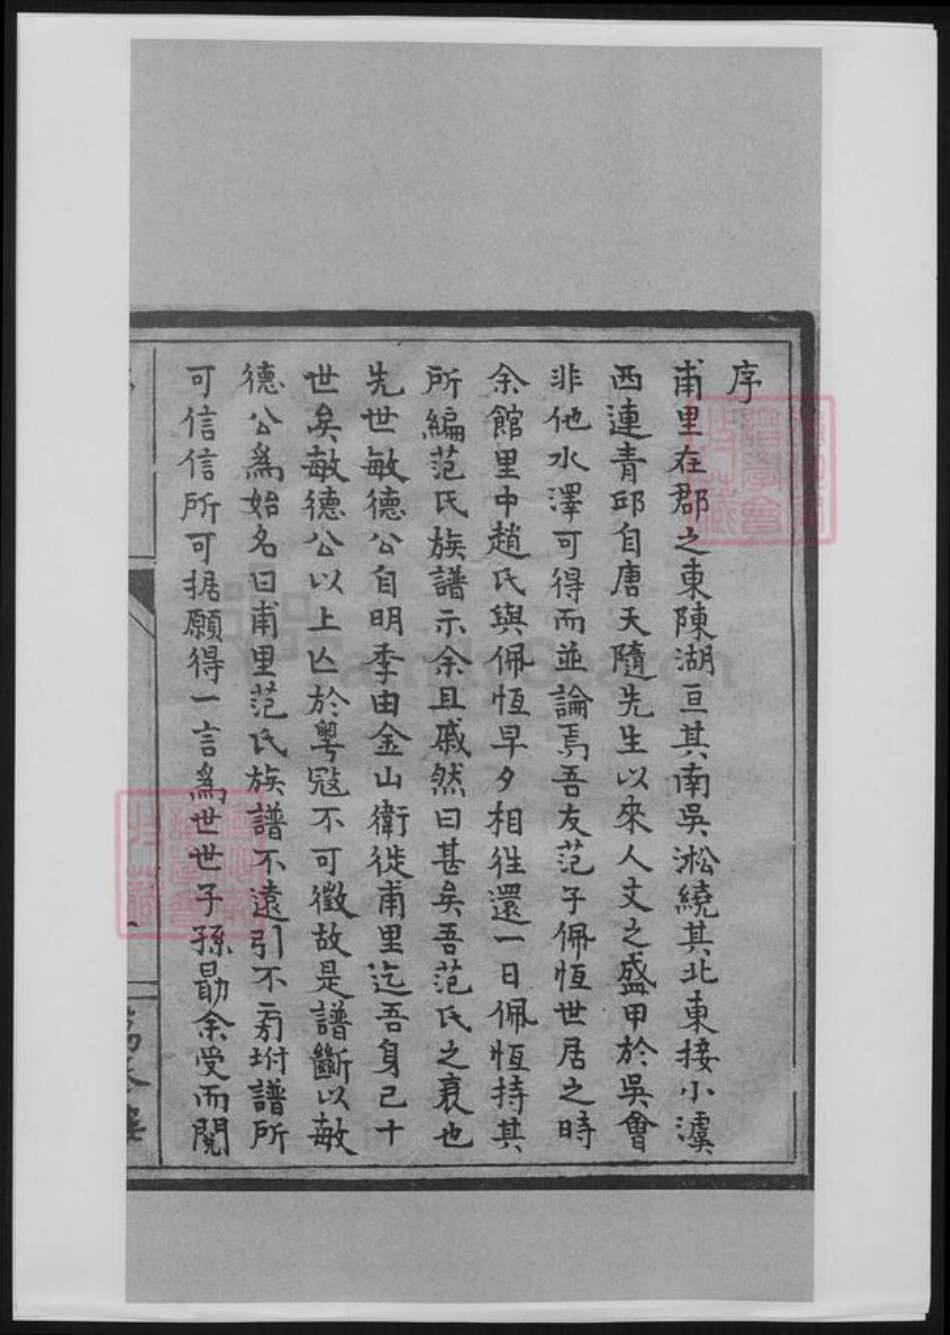 序
甫里在郡之東陳湖亘其南吳淞繞其北東接小澞
西連青邱自唐天隨先生以來人文之盛甲於吳會
非他水澤可得而並論焉吾友范子佩恆世居之時
余館里中趙氏與佩恆早夕相往還一日佩恆持其
所編范氏族譜示余且戚然曰甚矣吾范氏之衰也
先世敏德公自明季由金山衛徙甫里迄吾身已十
世矣敏德公以上亾於粤冦不可徵故是譜斷以敏
德公爲始名曰甫里范氏族譜不遠引不旁坿譜所
可信信所可据願得一言爲世世子孫勖余受而閱